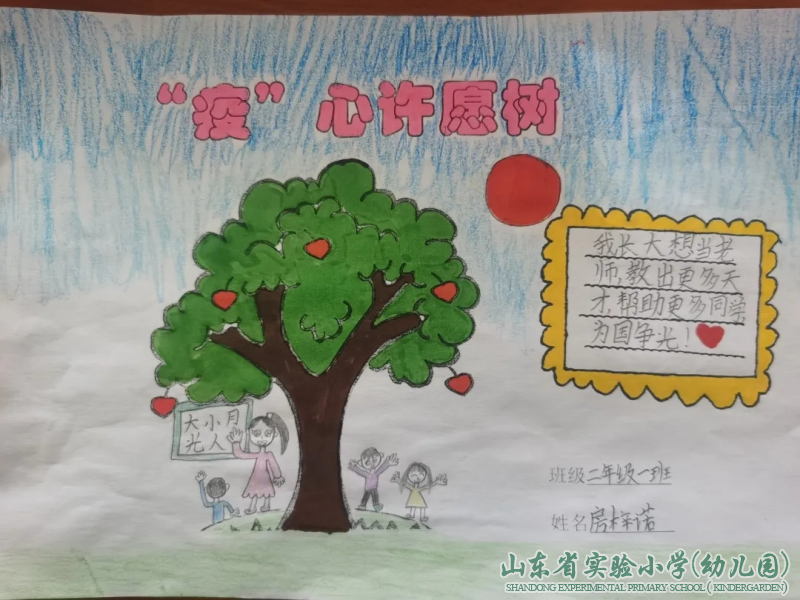 “疫”心许愿树
我长大想当老
师,教出更多天
才,帮助更多同学
为国争光!
大小月
光人
班级二年级一班
姓名房梓诺
山东省实验小学(幼儿园)
SHANDONG EXPERIMENTAL PRIMARY SCHOOL ( KINDERGARDEN)